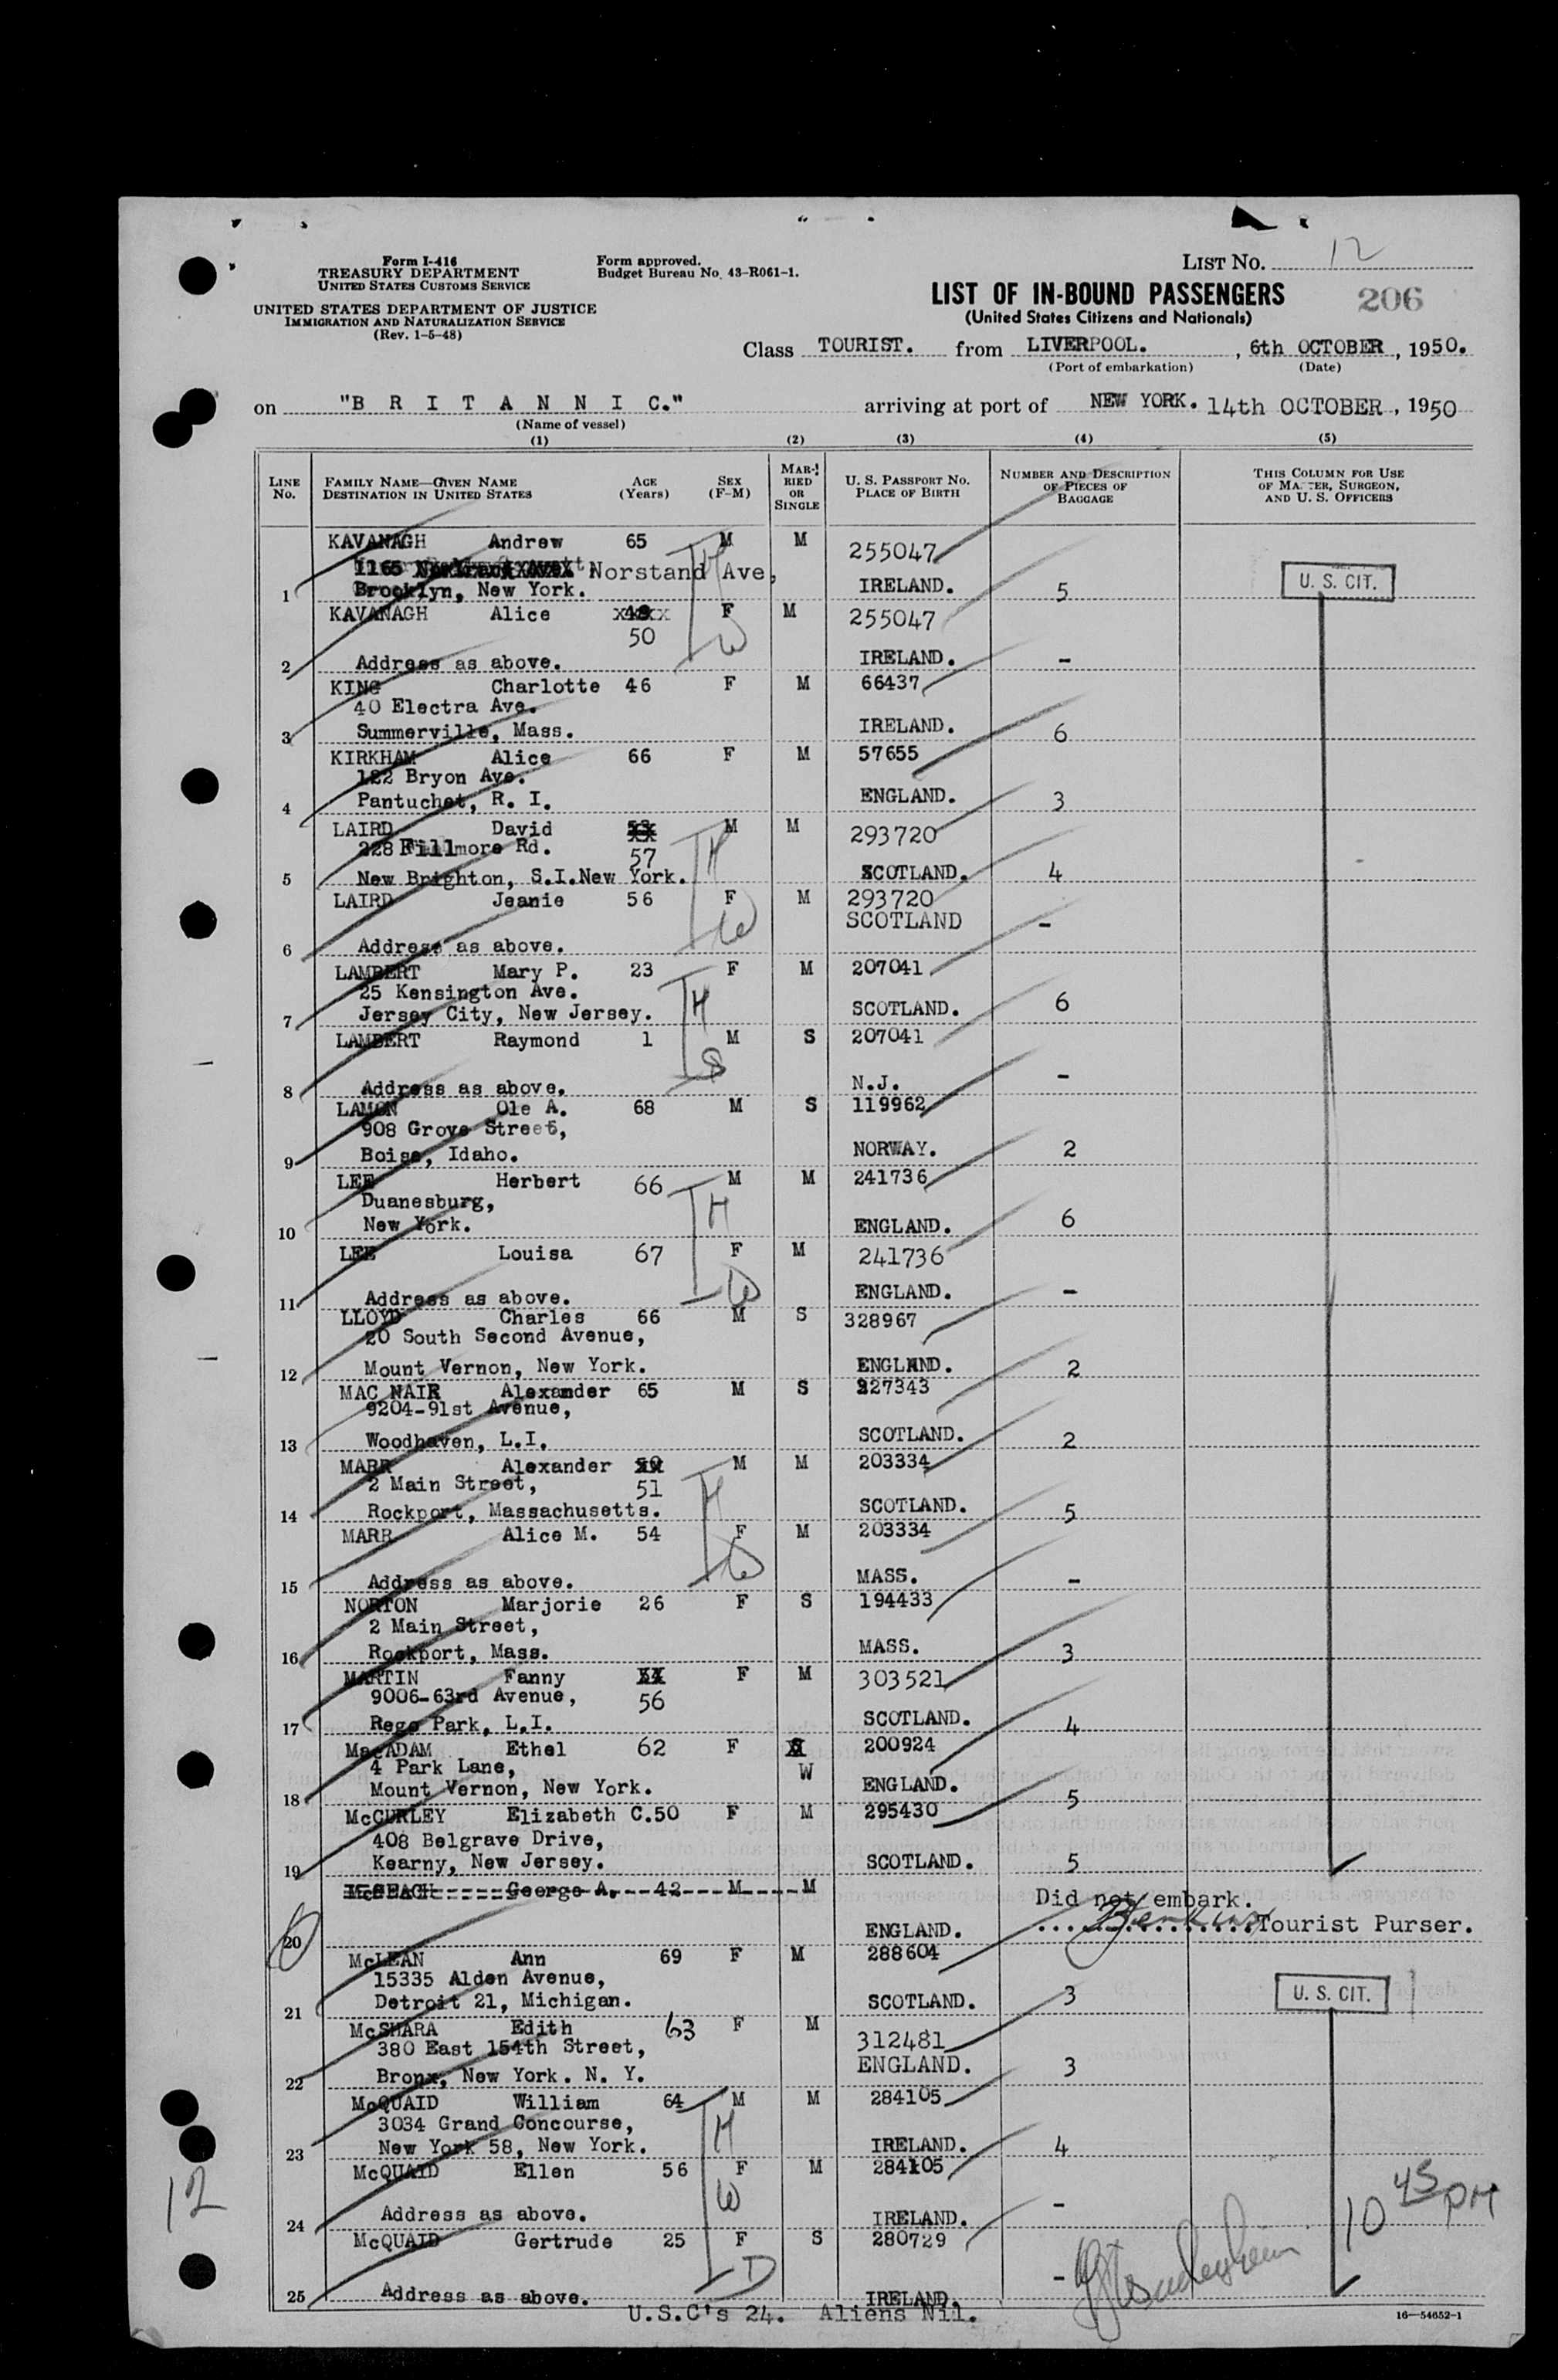 Form I-416
TREASURY DEPARTMENT
UNITED STATES CUSTOMS SERVICE
UNITED STATES DEPARTMENT OF JUSTICE
IMMIGRATION AND NATURALIZATION SERVICE
(Rev. 1-5-48)
Form approved.
Budget Bureau No. 43-R061-1.
LIST NO. 12
LIST OF IN-BOUND PASSENGERS 206
(United States Citizens and Nationals)
Class TOURIST. from LIVERPOOL. , 6th OCTOBER , 1950.
(Port of embarkation) (Date)
on "B R I T A N N I C." arriving at port of NEW YORK. 14th OCTOBER , 1950
(Name of vessel)
(1) (2) (3) (4) (5)
LINE No. FAMILY NAME—GIVEN NAME DESTINATION IN UNITED STATES AGE (Years) SEX (F-M) MARRIED OR SINGLE U. S. PASSPORT NO. PLACE OF BIRTH NUMBER AND DESCRIPTION OF PIECES OF BAGGAGE THIS COLUMN FOR USE OF MASTER, SURGEON, AND U. S. OFFICERS
KAVANAGH Andrew 65 M M 255047
1165 Norstand Ave, H
1 Brooklyn, New York. IRELAND. 5 U. S. CIT.
KAVANAGH Alice F M 255047
50 W
2 Address as above. IRELAND. -
KING Charlotte 46 F M 66437
40 Electra Ave.
3 Summerville, Mass. IRELAND. 6
KIRKHAM Alice 66 F M 57655
122 Bryon Ave.
4 Pantuchet, R. I. ENGLAND. 3
LAIRD David M M 293720
228 Fillmore Rd. 57 H
5 New Brighton, S.I.New York. SCOTLAND. 4
LAIRD Jeanie 56 F M 293720
W SCOTLAND -
6 Address as above.
LAMBERT Mary P. 23 F M 207041
25 Kensington Ave. H
7 Jersey City, New Jersey. SCOTLAND. 6
LAMBERT Raymond 1 M S 207041
S
8 Address as above. N.J. -
LAMON Ole A. 68 M S 119962
908 Grove Street,
9 Boise, Idaho. NORWAY. 2
LEE Herbert 66 M M 241736
Duanesburg, H
10 New York. ENGLAND. 6
LEE Louisa 67 F M 241736
W
11 Address as above. ENGLAND. -
LLOYD Charles 66 M S 328967
20 South Second Avenue,
12 Mount Vernon, New York. ENGLAND. 2
MAC NAIR Alexander 65 M S 327343
9204-91st Avenue,
13 Woodhaven, L.I. SCOTLAND. 2
MARR Alexander M M 203334
2 Main Street, 51 H
14 Rockport, Massachusetts. SCOTLAND. 5
MARR Alice M. 54 F M 203334
W
15 Address as above. MASS. -
NORTON Marjorie 26 F S 194433
2 Main Street,
16 Rockport, Mass. MASS. 3
MARTIN Fanny F M 303521
9006-63rd Avenue, 56
17 Rego Park, L.I. SCOTLAND. 4
MacADAM Ethel 62 F 200924
4 Park Lane, W
18 Mount Vernon, New York. ENGLAND. 5
McCURLEY Elizabeth C.50 F M 295430
408 Belgrave Drive,
19 Kearny, New Jersey. SCOTLAND. 5
George A. 42 M M
Did not embark.
20 ENGLAND. Tourist Purser.
McLEAN Ann 69 F M 288604
15335 Alden Avenue,
21 Detroit 21, Michigan. SCOTLAND. 3 U. S. CIT.
McSHARA Edith 63 F M 312481
380 East 154th Street, ENGLAND. 3
22 Bronx, New York. N. Y.
McQUAID William 64 M M 284105
3034 Grand Concourse, H
23 New York 58, New York. IRELAND. 4
McQUAID Ellen 56 F M 284105
W
24 Address as above. IRELAND. -
McQUAID Gertrude 25 F S 280729
D
25 Address as above. IRELAND. -
12
10 45 PM
U.S.C's 24. Aliens Nil.
16—54652-1